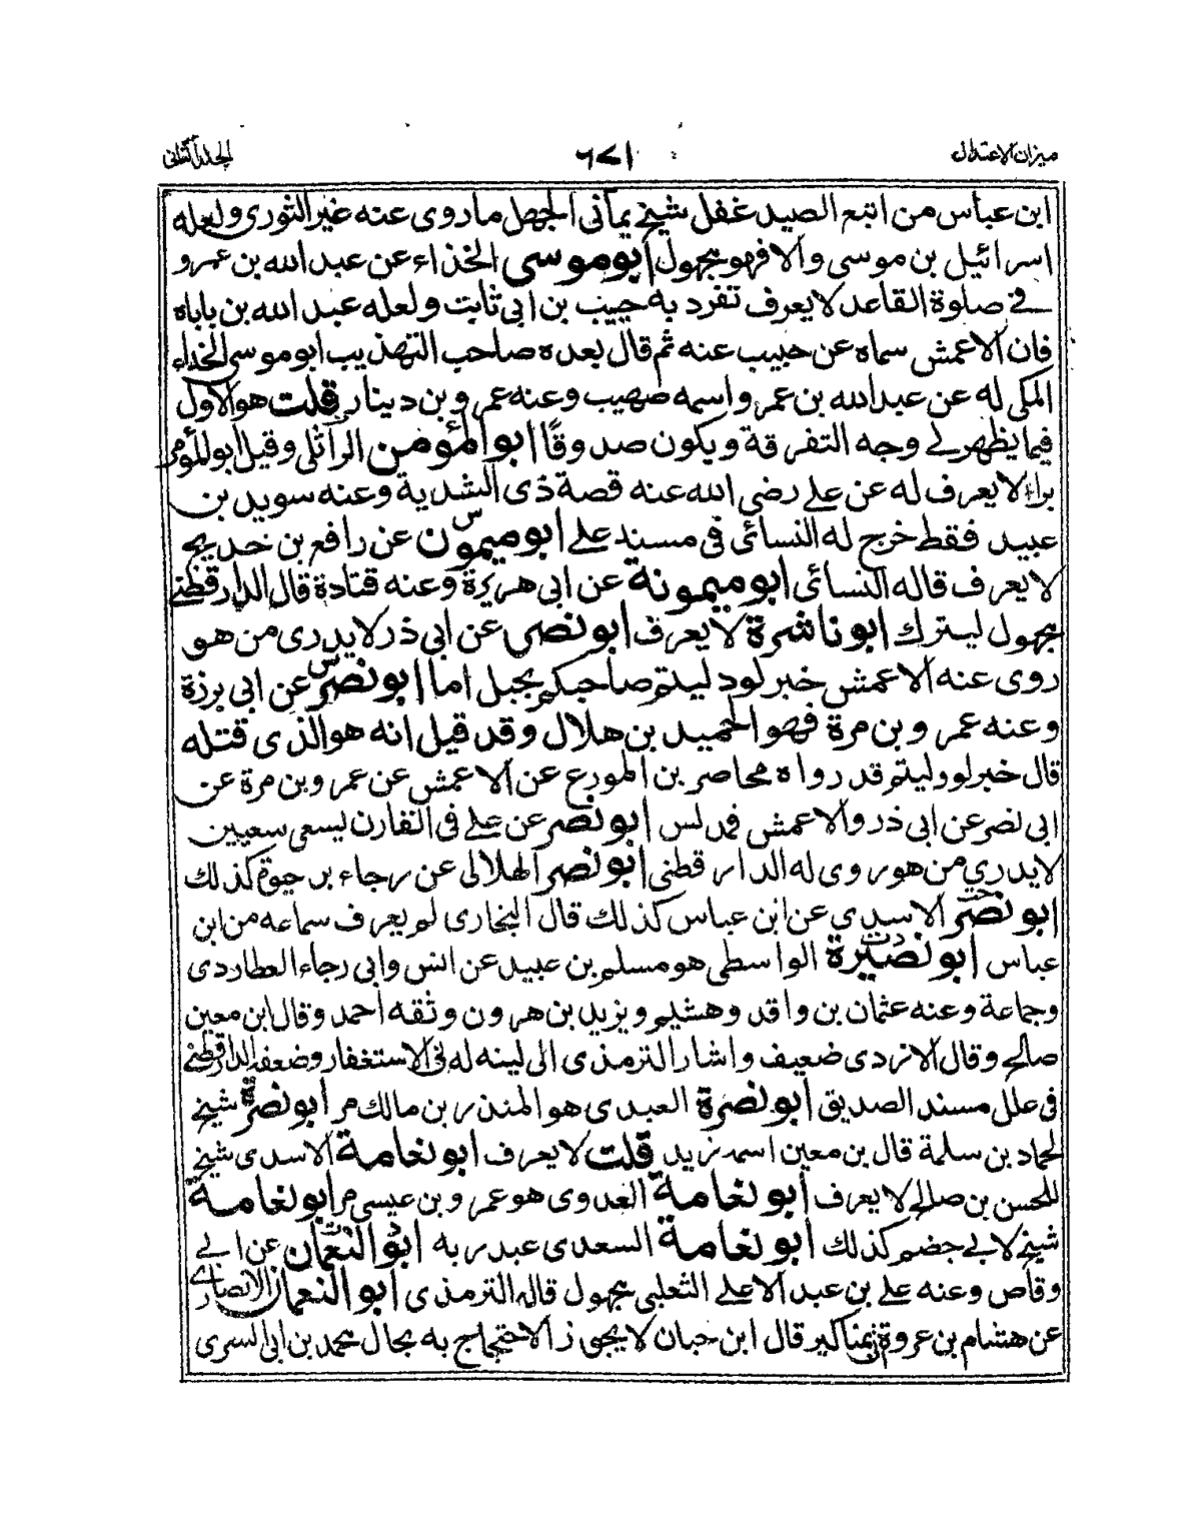 ميزان الاعتدال ٦٧١ الجلد الثانى
ابن عباس من اتبع الصيد غفل شيخ يمانى الجهل ما روى عنه غير الثورى ولعله
اسرائيل بن موسى والا فهو مجهول ابو موسى الحذاء عن عبد الله بن عمرو
فے صلوة القاعد لا يعرف تفرد به حبيب بن ابى ثابت ولعله عبد الله بن باباه
فان الاعمش سماه عن حبيب عنه ثم قال بعده صاحب التهذيب ابو موسى الحذاء
المكى له عن عبد الله بن عمر واسمه صهيب وعنه عمر وبن دينار قلت هو الاول
فيما يظهر لے وجه التفرقة ويكون صدوقًا ابو المؤمن الراثلى وقيل ابو المؤمر
براء لا يعرف له عن علے رضى الله عنه قصة ذى الثدية وعنه سويد بن
عبيد فقط خرج له النسائى فى مسند علے ابو ميمون س عن رافع بن خديج
لا يعرف قاله النسائى ابو ميمونة عن ابى هريرة وعنه قتادة قال الدارقطنے
مجهول ليترك ابو ناشرة لا يعرف ابو نصر عن ابى ذر لا يدرى من هو
روى عنه الاعمش خبر لو دليتم صاحبكم بحبل اما ابو نصر س عن ابى برزة
وعنه عمر وبن مرة فهو الحميد بن هلال وقد قيل انه هو الذى قتله
قال خبر لو دليتم قد رواه محاصر بن المورع عن الاعمش عن عمر وبن مرة عن
ابى نصر عن ابى ذر والاعمش فمدلس ابو نصر عن علے فى القارن يسعى سعيين
لا يدرى من هو روى له الدار قطنى ابو نصر الهلالى عن رجاء بن حيوة كذلك
ابو نصر الاسدى عن ابن عباس كذلك قال البخارى لم يعرف سماعه من ابن
عباس ابو نصيرة د ت الواسطى هو مسلم بن عبيد عن انس وابى رجاء العطاردى
وجماعة وعنه عثمان بن واقد وهشيم ويزيد بن هرون وثقه احمد وقال ابن معين
صالح وقال الازدى ضعيف واشار الترمذى الى لينه له فى الاستغفار وضعفه الدارقطنے
فى علل مسند الصديق ابو نضرة العبدى هو المنذر بن مالك مر ابو نضرة شيخ
لحماد بن سلمة قال بن معين اسمه يزيد قلت لا يعرف ابو نعامة الاسدى شيخ
للحسن بن صالح لا يعرف ابو نعامة العدوى هو عمر وبن عيسى مر ابو نعامة
شيخ لابے حضم كذلك ابو نعامة السعدى عبد ربه ابو النعمان د ت عن ابے
وقاص وعنه علے بن عبد الاعلے الثعلبى مجهول قاله الترمذى ابو النعمان الانصارے
عن هشام بن عروة بمناكير قال ابن حبان لا يجوز الاحتجاج به بحال محمد بن ابى السرى